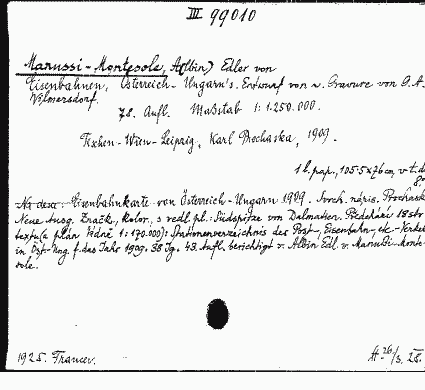 III 99010
Marussi-Montesole, A(lbin) Edler von
Eisenbahnen, Österreich-Ungarn's. Entwurf von u. Gravure von G. A.
Wilmersdorf.
78. Aufl. Maßstab 1:1.250.000.
Teschen-Wien-Leipzig, Karl Prochaska, 1909.
1 l. pap., 105·5x76 cm, v t. d.
8°
Na desc.: Eisenbahnkarte von Österreich-Ungarn 1909. Prochaska
Neue Ausg. Značk., kolor., s vedl. pl.: Südspitze von Dalmatien. Předchází 18 str
textu (a plán Vídně 1:170.000): Stationenverzeichnis des Post-, Eisenbahn-, etc-Verkeh
in Öst-Ung. f. das Jahr 1909. 38 Jg. 43. Aufl. berichtigt v. Albin Edl. v. Marussi-Monte-
sole.
1925. Francev.